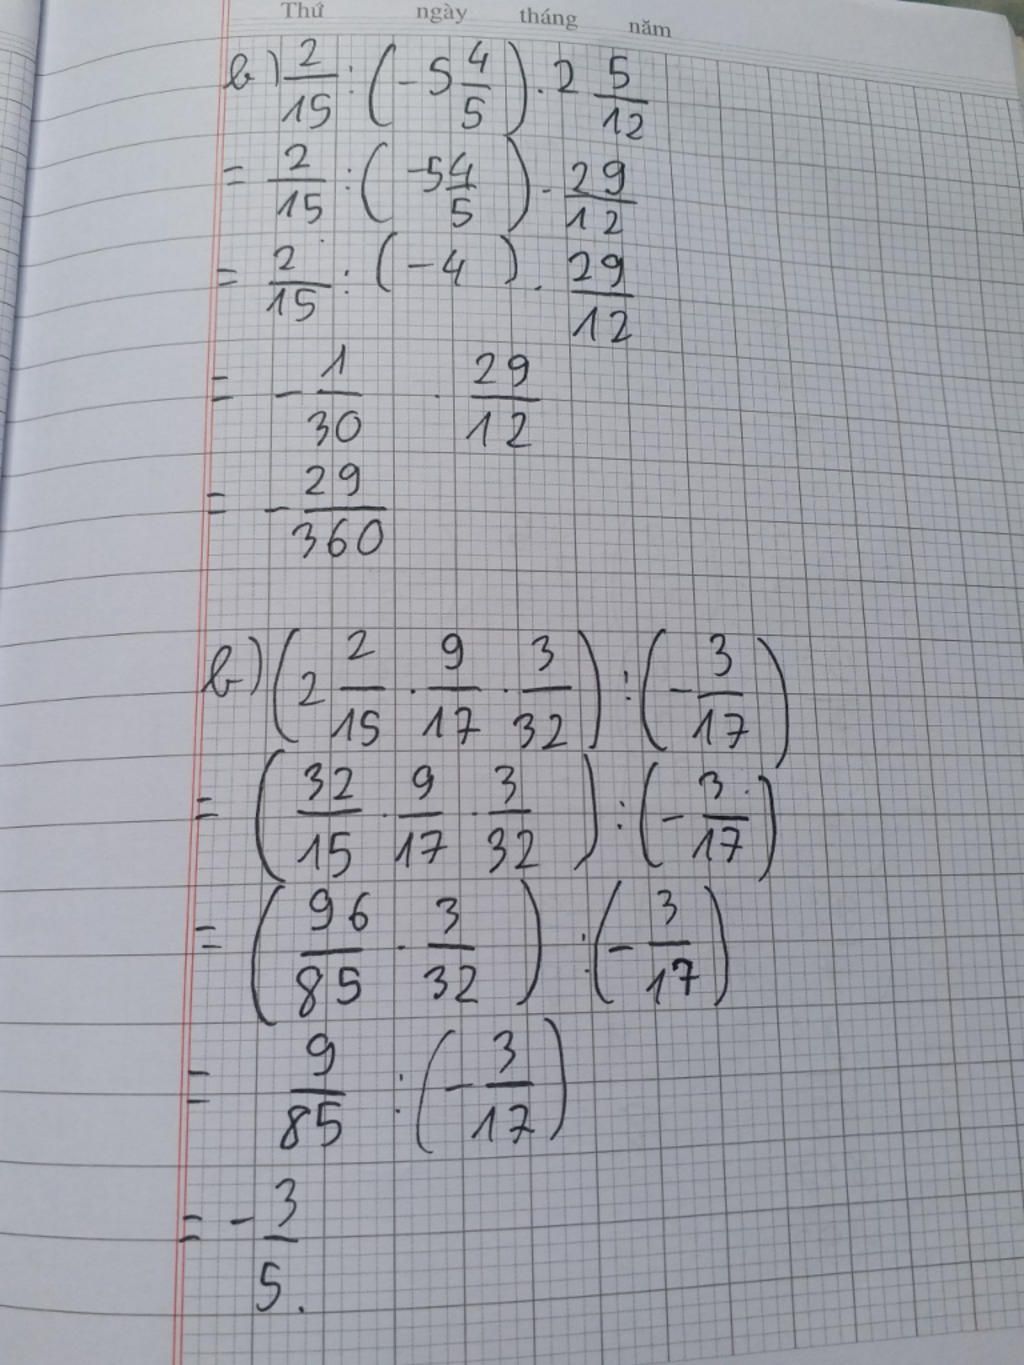 Thứ ngày tháng năm
b) 2/15 : (-5 4/5) . 2 5/12
= 2/15 : (-5 4/5) . 29/12
= 2/15 : (-4) . 29/12
= -1/30 . 29/12
= -29/360
b) (2 2/15 . 9/17 . 3/32) : (-3/17)
= (32/15 . 9/17 . 3/32) : (-3/17)
= (96/85 . 3/32) : (-3/17)
= 9/85 : (-3/17)
= -3/5.